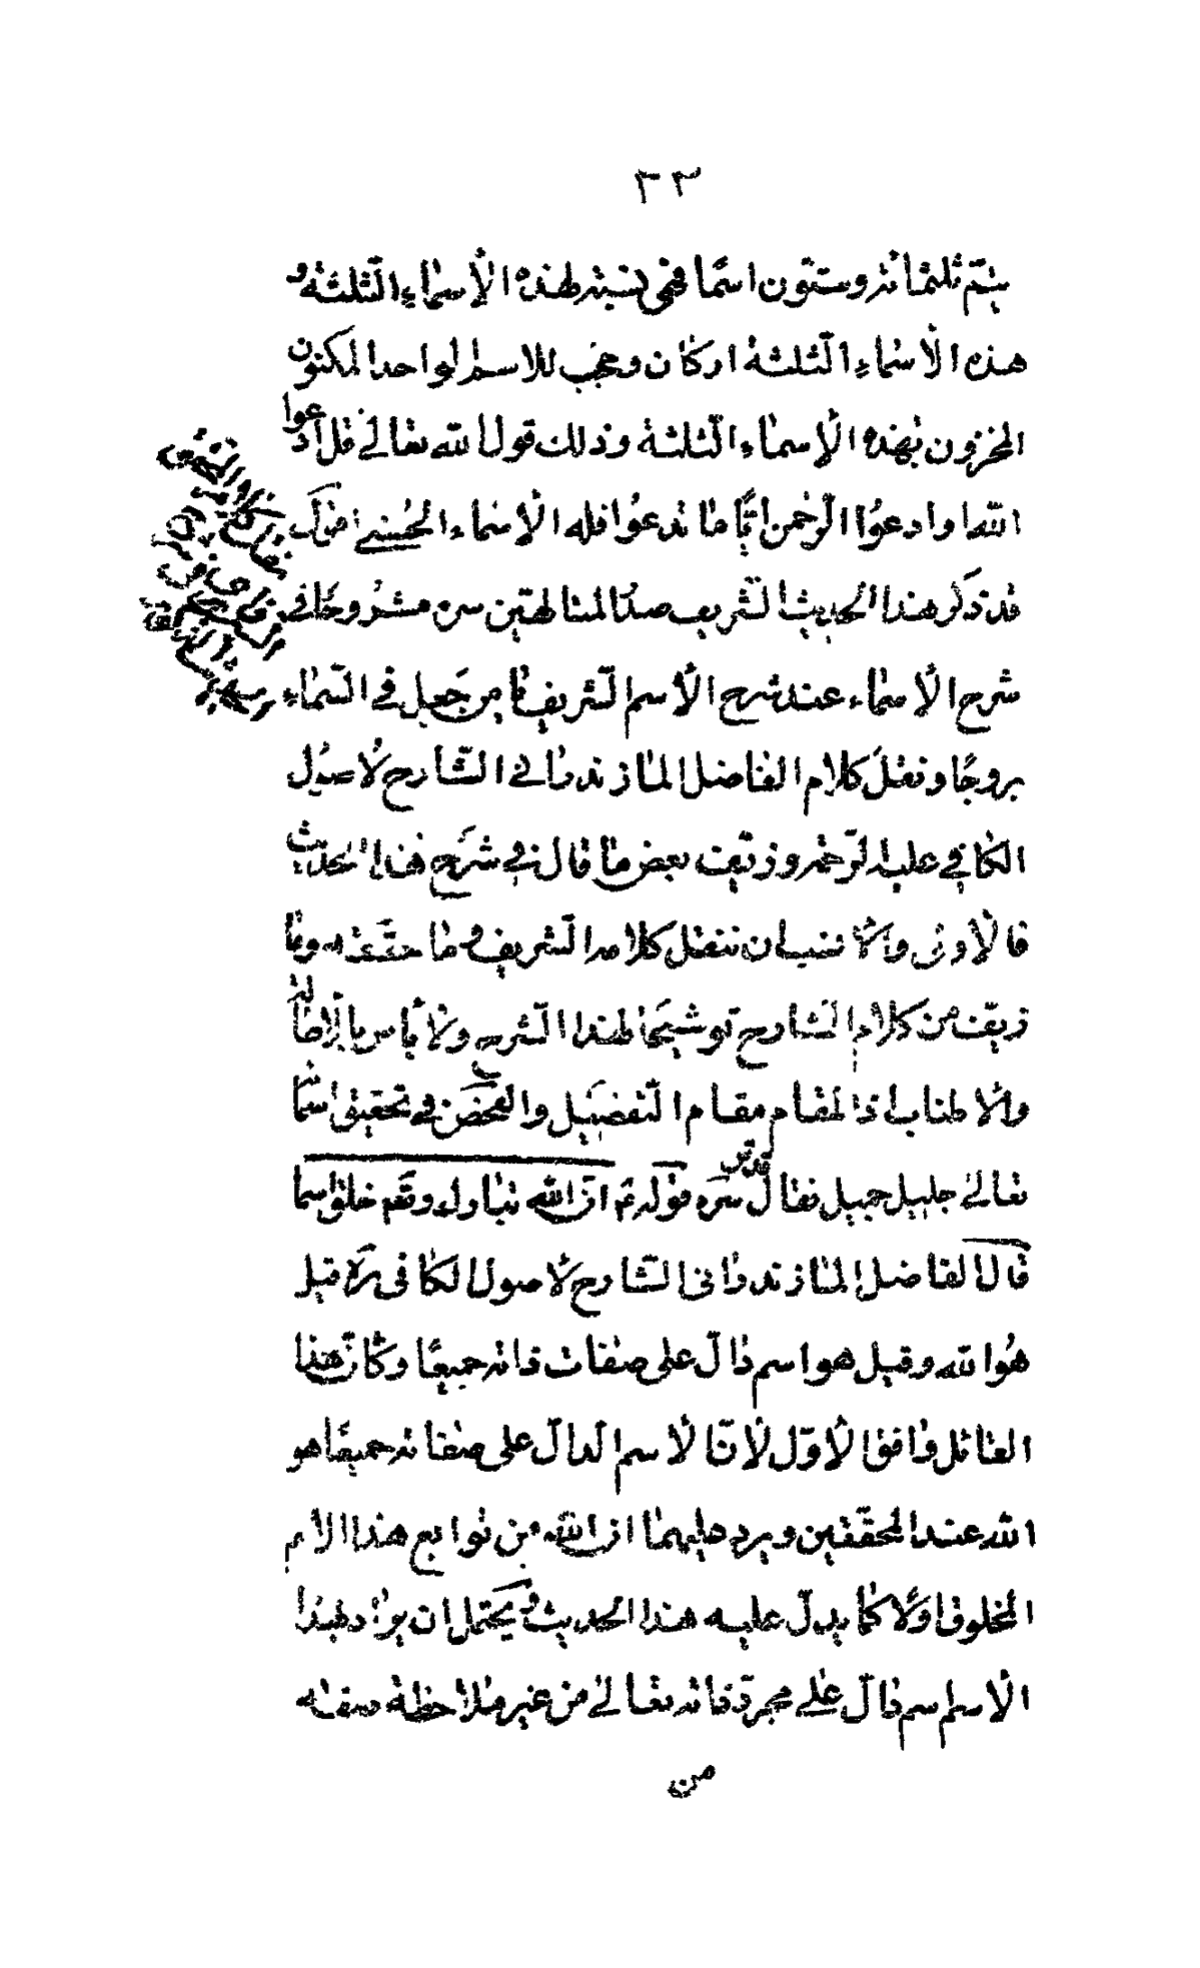 ٣٣
يتمّ ثلثمائة وستّون اسمًا فهى نسبة لهذه الأسماء الثلثة و
هذه الأسماء الثّلثة اركان وحجب للاسم الواحد المكنون
المخزون بهذه الأسماء الثّلثة وذلك قول الله تعالى قل ادعوا
الله او ادعوا الرّحمن ايًّا ما تدعوا فله الأسماء الحسنى اقول
قد ذكر هذا الحديث الشّريف صدر المتالهين س مشروحًا فى
شرح الأسماء عند شرح الأسم الشّريف يا من جعل فى السّماء
بروجًا ونقل كلام الفاضل المازندرانى الشّارح لأصول
الكافى عليه الرّحمة وزيّف بعض ما قال فى شرح هذا الحديث
فالأولى والأنسب ان ننقل كلامه الشريف وما حقّقه وما
زيّف من كلام الشارح توشيحًا لهذا الشّرح ولا بأس بالإطالة
والأطناب اذ المقام مقام التّفضيل والفحص فى تحقيق اسماء
تعالى جليل جميل فقال قدّس سرّه قوله ع انّ الله تبارك وتعالى خلق اسما
قال الفاضل المازندرانى الشّارح لأصول الكافى ره قيل
هو الله وقيل هو اسم دالّ على صفات ذاته جميعًا وكانّ هذا
القائل وافق الأوّل لأنّ الأسم الدالّ على صفاته جميعًا هو
الله عند المحقّقين ويرد عليهما انّ الله من توابع هذا الاسم
المخلوق اوّلا كما يدلّ عليه هذا الحديث ويحتمل ان يراد بهذا
الأسم اسم دالّ على مجرّد ذاته تعالى من غير ملاحظة صفة
من